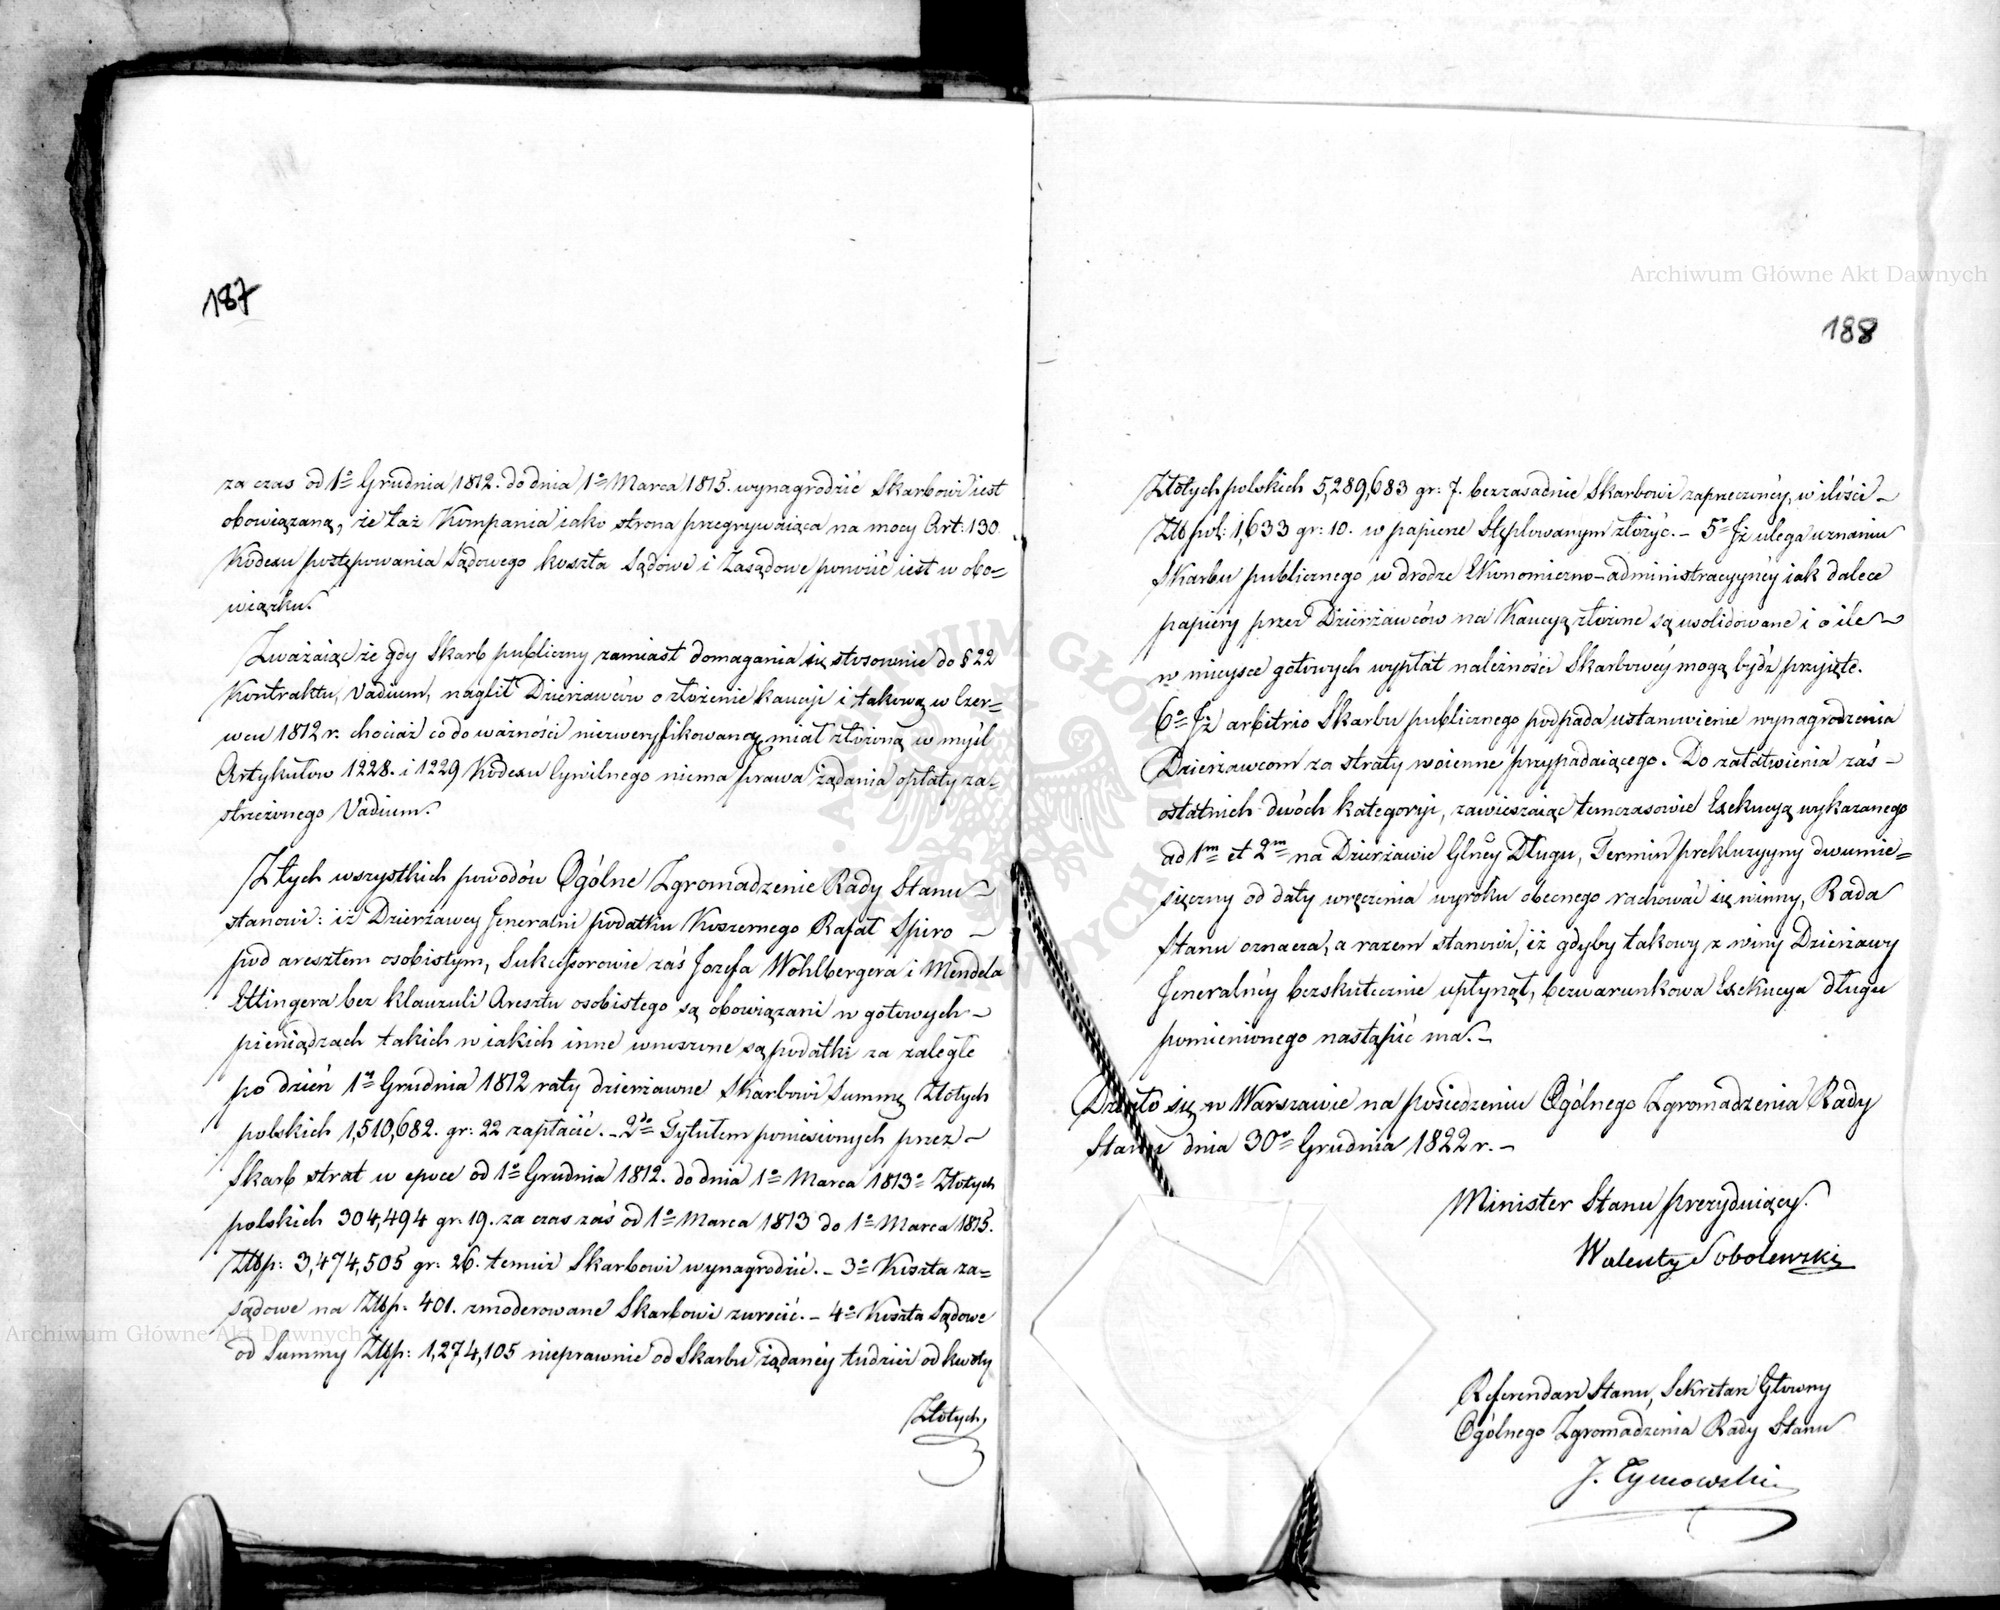 187
za czas od 1º Grudnia 1812. do dnia 1º Marca 1815. wynagrodzić Skarbowi iest
obowiązaną, że taż Kompania iako strona przegrywaiąca na mocy Art: 130
Kodexu postępowania Sądowego koszta Sądowe i Zasądowe ponosić iest w obo=
wiązku.
Zważaiąc że gdy Skarb publiczny zamiast domagania się stosownie do § 22
Kontraktu, Vadium, naglił Dzierżawców o złożenie kaucyi i takową w Czer=
wcu 1812 r. chociaż co do ważności niezweryfikowaną miał złożoną w myśl
Artykułów 1228. i 1229 Kodexu Cywilnego niema prawa żądania opłaty za=
strzeżonego Vadium.
Z tych wszystkich powodów Ogólne Zgromadzenie Rady Stanu
stanowi: iż Dzierżawcy Jeneralni podatku Koszernego Rafał Spiro
pod aresztem osobistym, Sukcessorowie zaś Jozefa Wohlbergera i Mendela
Ettingera bez klauzuli Aresztu osobistego są obowiązani w gotowych
pieniądzach takich w iakich inne wnoszone są podatki za zaległe
po dzień 1º Grudnia 1812 raty dzierżawne Skarbowi Summę Złotych
polskich 1,510,682. gr: 22 zapłacić. – 2º Tytułem poniesionych przez
Skarb strat w epoce od 1º Grudnia 1812. do dnia 1º Marca 1813º Złotych
polskich 304,494 gr: 19. za czas zaś od 1º Marca 1813 do 1º Marca 1815.
Złtp: 3,474,505 gr: 26. temuż Skarbowi wynagrodzić. – 3º Koszta za=
sądowe na Złtp: 401. zmoderowane Skarbowi zwrócić. – 4º Koszta Sądowe
od Summy Złtp: 1,274,105 nieprawnie od Skarbu żądanéy tudzież od kwoty
Złotych
188
Złotych polskich 5,289,683 gr: 7. bezzasadnie Skarbowi zaprzeczonéy, w ilości
Złt pol: 1,633 gr: 10. w papierze Stęplowanym złożyć. – 5º Iż ulega uznaniu
Skarbu publicznego w drodze Ekonomiczno-administracyynéy iak dalece
papiery przez Dzierżawców na Kaucyą złożone są usolidowane i o ile
w mieysce gotowych wypłat należności Skarbowéy mogą bydź przyięte.
6º Iż arbitrio Skarbu publicznego podpada ustanowienie wynagrodzenia
Dzierżawcom za straty woienne przypadaiącego. Do załatwienia zaś
ostatnich dwóch kategoryi, zawieszaiąc temczasowie Exekucyą wykazanego
ad 1m et 2m na Dzierżawie Glnéy Długu, Termin prekluzyyny dwumie=
sięczny od daty wręczenia wyroku obecnego rachować się winny, Rada
Stanu oznacza, a razem stanowi, iż gdyby takowy z winy Dzierżawy
Jeneralnéy bezskutecznie upłynął, bezwarunkowa Exekucya długu
pomienionego nastąpić ma. –
Działo się w Warszawie na posiedzeniu Ogólnego Zgromadzenia Rady
Stanu dnia 30º Grudnia 1822 r. –
Minister Stanu prezyduiący.
Walenty Sobolewski
Referendarz Stanu, Sekretarz Głowny
Ogólnego Zgromadzenia Rady Stanu
J. Tymowski
Archiwum Główne Akt Dawnych
Archiwum Główne Akt Dawnych